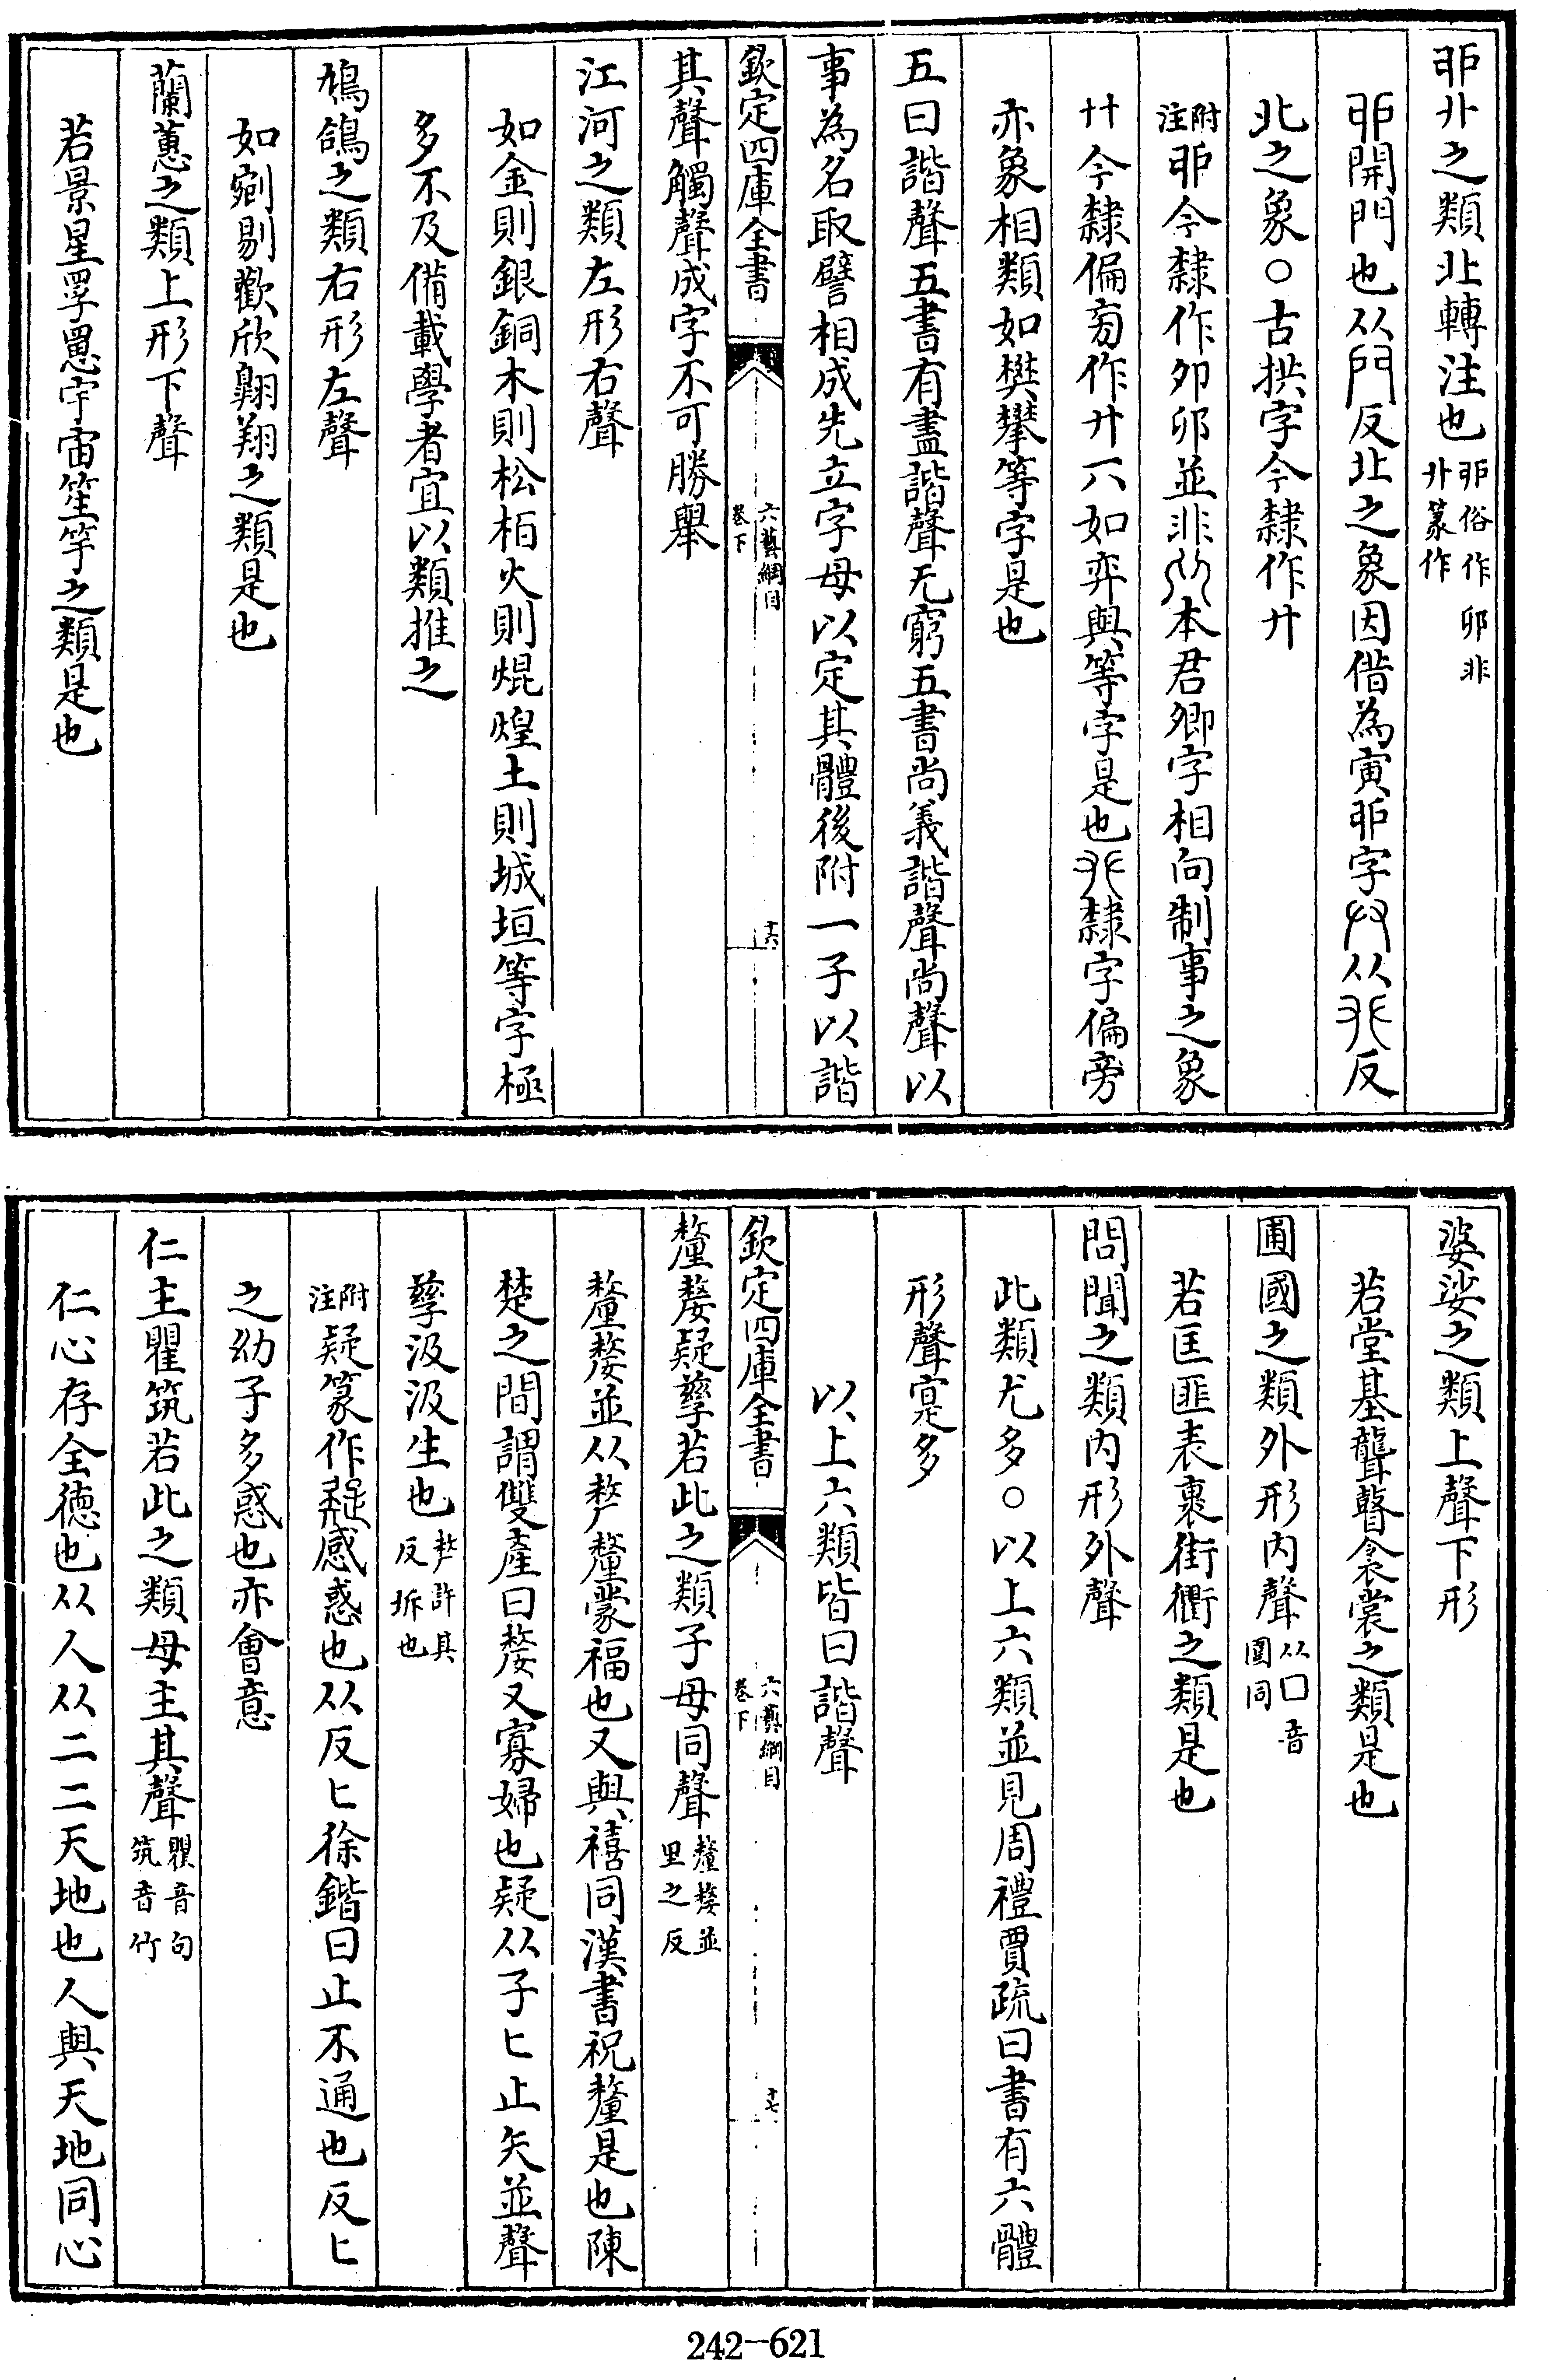 戼廾之類北轉注也戼俗作卯非廾篆作
戼開門也从門反北之象因借為寅戼字从反
北之象○古拱字今隸作廾
附注戼今隸作夘卯並非本君卿字相向制事之象
廾今隸偏旁作廾六如弈與等字是也隸字偏旁
亦象相類如樊攀等字是也
五曰諧聲五書有盡諧聲无窮五書尚義諧聲尚聲以
事為名取譬相成先立字母以定其體後附一子以諧
欽定四庫全書
六藝綱目
卷下
十六
其聲觸聲成字不可勝舉
江河之類左形右聲
如金則銀銅木則松栢火則焜煌土則城垣等字極
多不及備載學者宜以類推之
鳩鴿之類右形左聲
如剜剔歡欣翺翔之類是也
蘭蕙之類上形下聲
若景星罦罳宇宙笙竽之類是也
婆娑之類上聲下形
若堂基聾瞽衾裳之類是也
圃國之類外形内聲从囗音圍同
若匡匪表裹街衢之類是也
問聞之類内形外聲
此類尤多○以上六類並見周禮賈疏曰書有六體
形聲寔多
以上六類皆曰諧聲
欽定四庫全書
六藝綱目
卷下
十七
釐嫠疑孳若此之類子母同聲釐嫠並里之反
釐嫠並从𠩺釐蒙福也又與禧同漢書祝釐是也陳
楚之間謂雙產曰嫠又寡婦也疑从子匕止矢並聲
孳汲汲生也𠩺許其反坼也
附注疑篆作惑也从反匕徐鍇曰止不通也反匕
之幼子多惑也亦會意
仁主瞿筑若此之類母主其聲瞿音句筑音竹
仁心存全德也从人从二二天地也人與天地同心
242-621